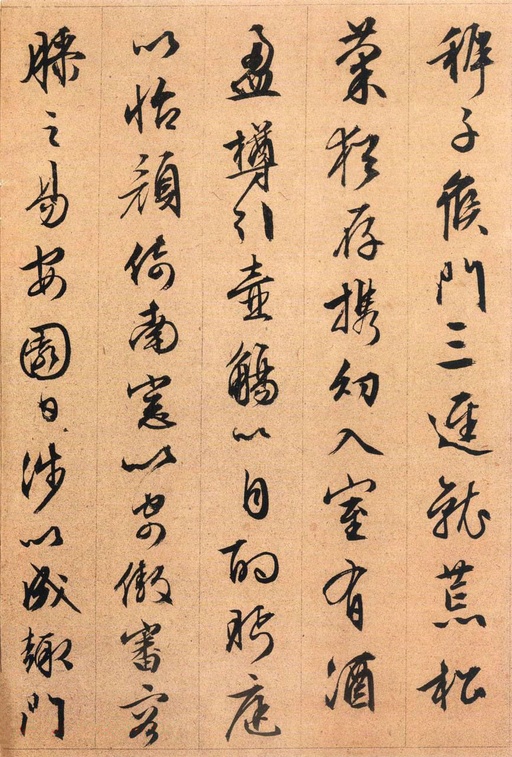 穉子候門三逕就荒松
菊猶存攜幼入室有酒
盈樽引壺觴以自酌眄庭
以怡顏倚南窗以寄傲審容
膝之易安園日涉以成趣門